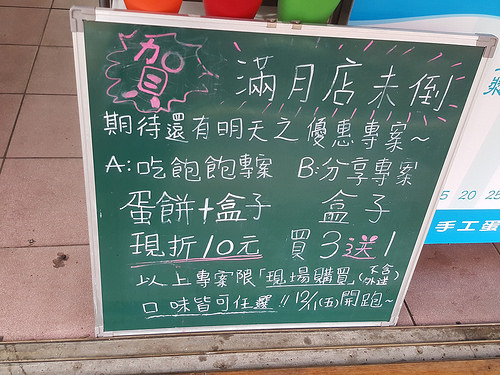 賀 滿月店未倒
期待還有明天之優惠專案~
A:吃飽飽專案 B:分享專案
蛋餅+盒子 盒子
現折10元 買3送1
以上專案限「現場購買(不含外送)
口味皆可任選!! 12/1(五)開跑~
5 20 25
手工蛋